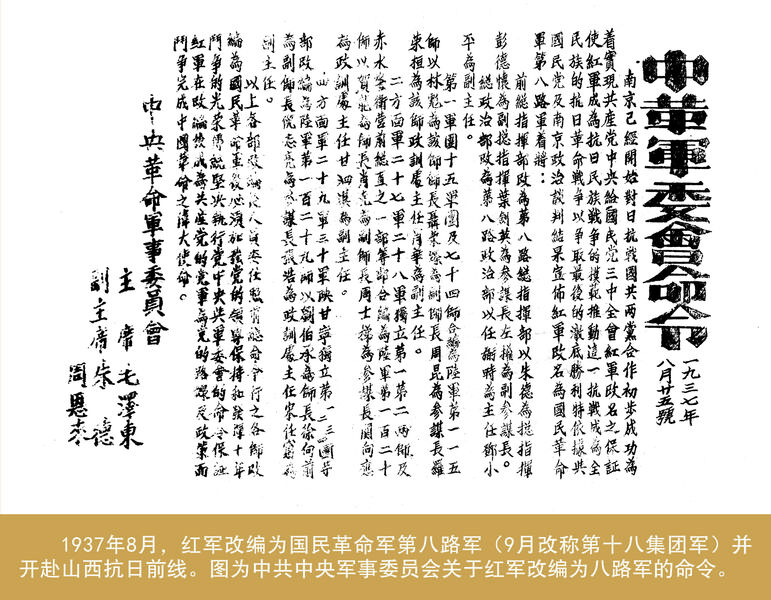 中革軍委會命令
一九三七年
八月廿五號
南京已經開始對日抗戰國共兩黨合作初步成功為
着實現共產党中央給國民党三中全會紅軍改名之保証
使紅軍成為抗日民族戰爭的模範推動這一抗戰成為全
民族的抗日革命戰爭以爭取最後的澈底勝利特依據與
國民党及南京政治談判結果宣佈紅軍改名為國民革命
軍第八路軍着將：
前總指揮部改為第八路總指揮部以朱德為總指揮
彭德懷為副總指揮葉劍英為參謀長左權為副參謀長。
總政治部改為第八路政治部以任弼時為主任鄧小
平為副主任。
第一軍團十五軍團及七十四師合編為陸軍第一一五
師以林彪為該師師長聶榮臻為副師長周昆為參謀長羅
榮桓為該師政訓處主任肖華為副主任。
二方面軍二十七軍二十八軍獨立第一第二兩師及
赤水警衛營前總直之一部等部合編為陸軍第一百二十
師以賀龍為師長肖克為副師長周士梯為參謀長關向應
為政訓處主任甘泗淇為副主任。
四方面軍二十九軍三十軍陝甘寧獨立第一二三四團等
部改編為陸軍第一百二十九師以劉伯承為師長徐向前
為副師長倪志亮為參謀長張浩為政訓處主任宋任窮為
副主任。
以上各部改編後人員委任照命令行之各師改
編為國民革命軍後必須加強党的領導保持和發揮十年
鬥爭的光榮傳統堅決執行党中央與軍委會的命令保証
紅軍在改編後成為共產党的党軍為党的路線及政策而
鬥爭完成中國革命之偉大使命。
中央革命軍事委員會
主席毛澤東
副主席朱德
周恩來
1937年8月，红军改编为国民革命军第八路军（9月改称第十八集团军）并
开赴山西抗日前线。图为中共中央军事委员会关于红军改编为八路军的命令。